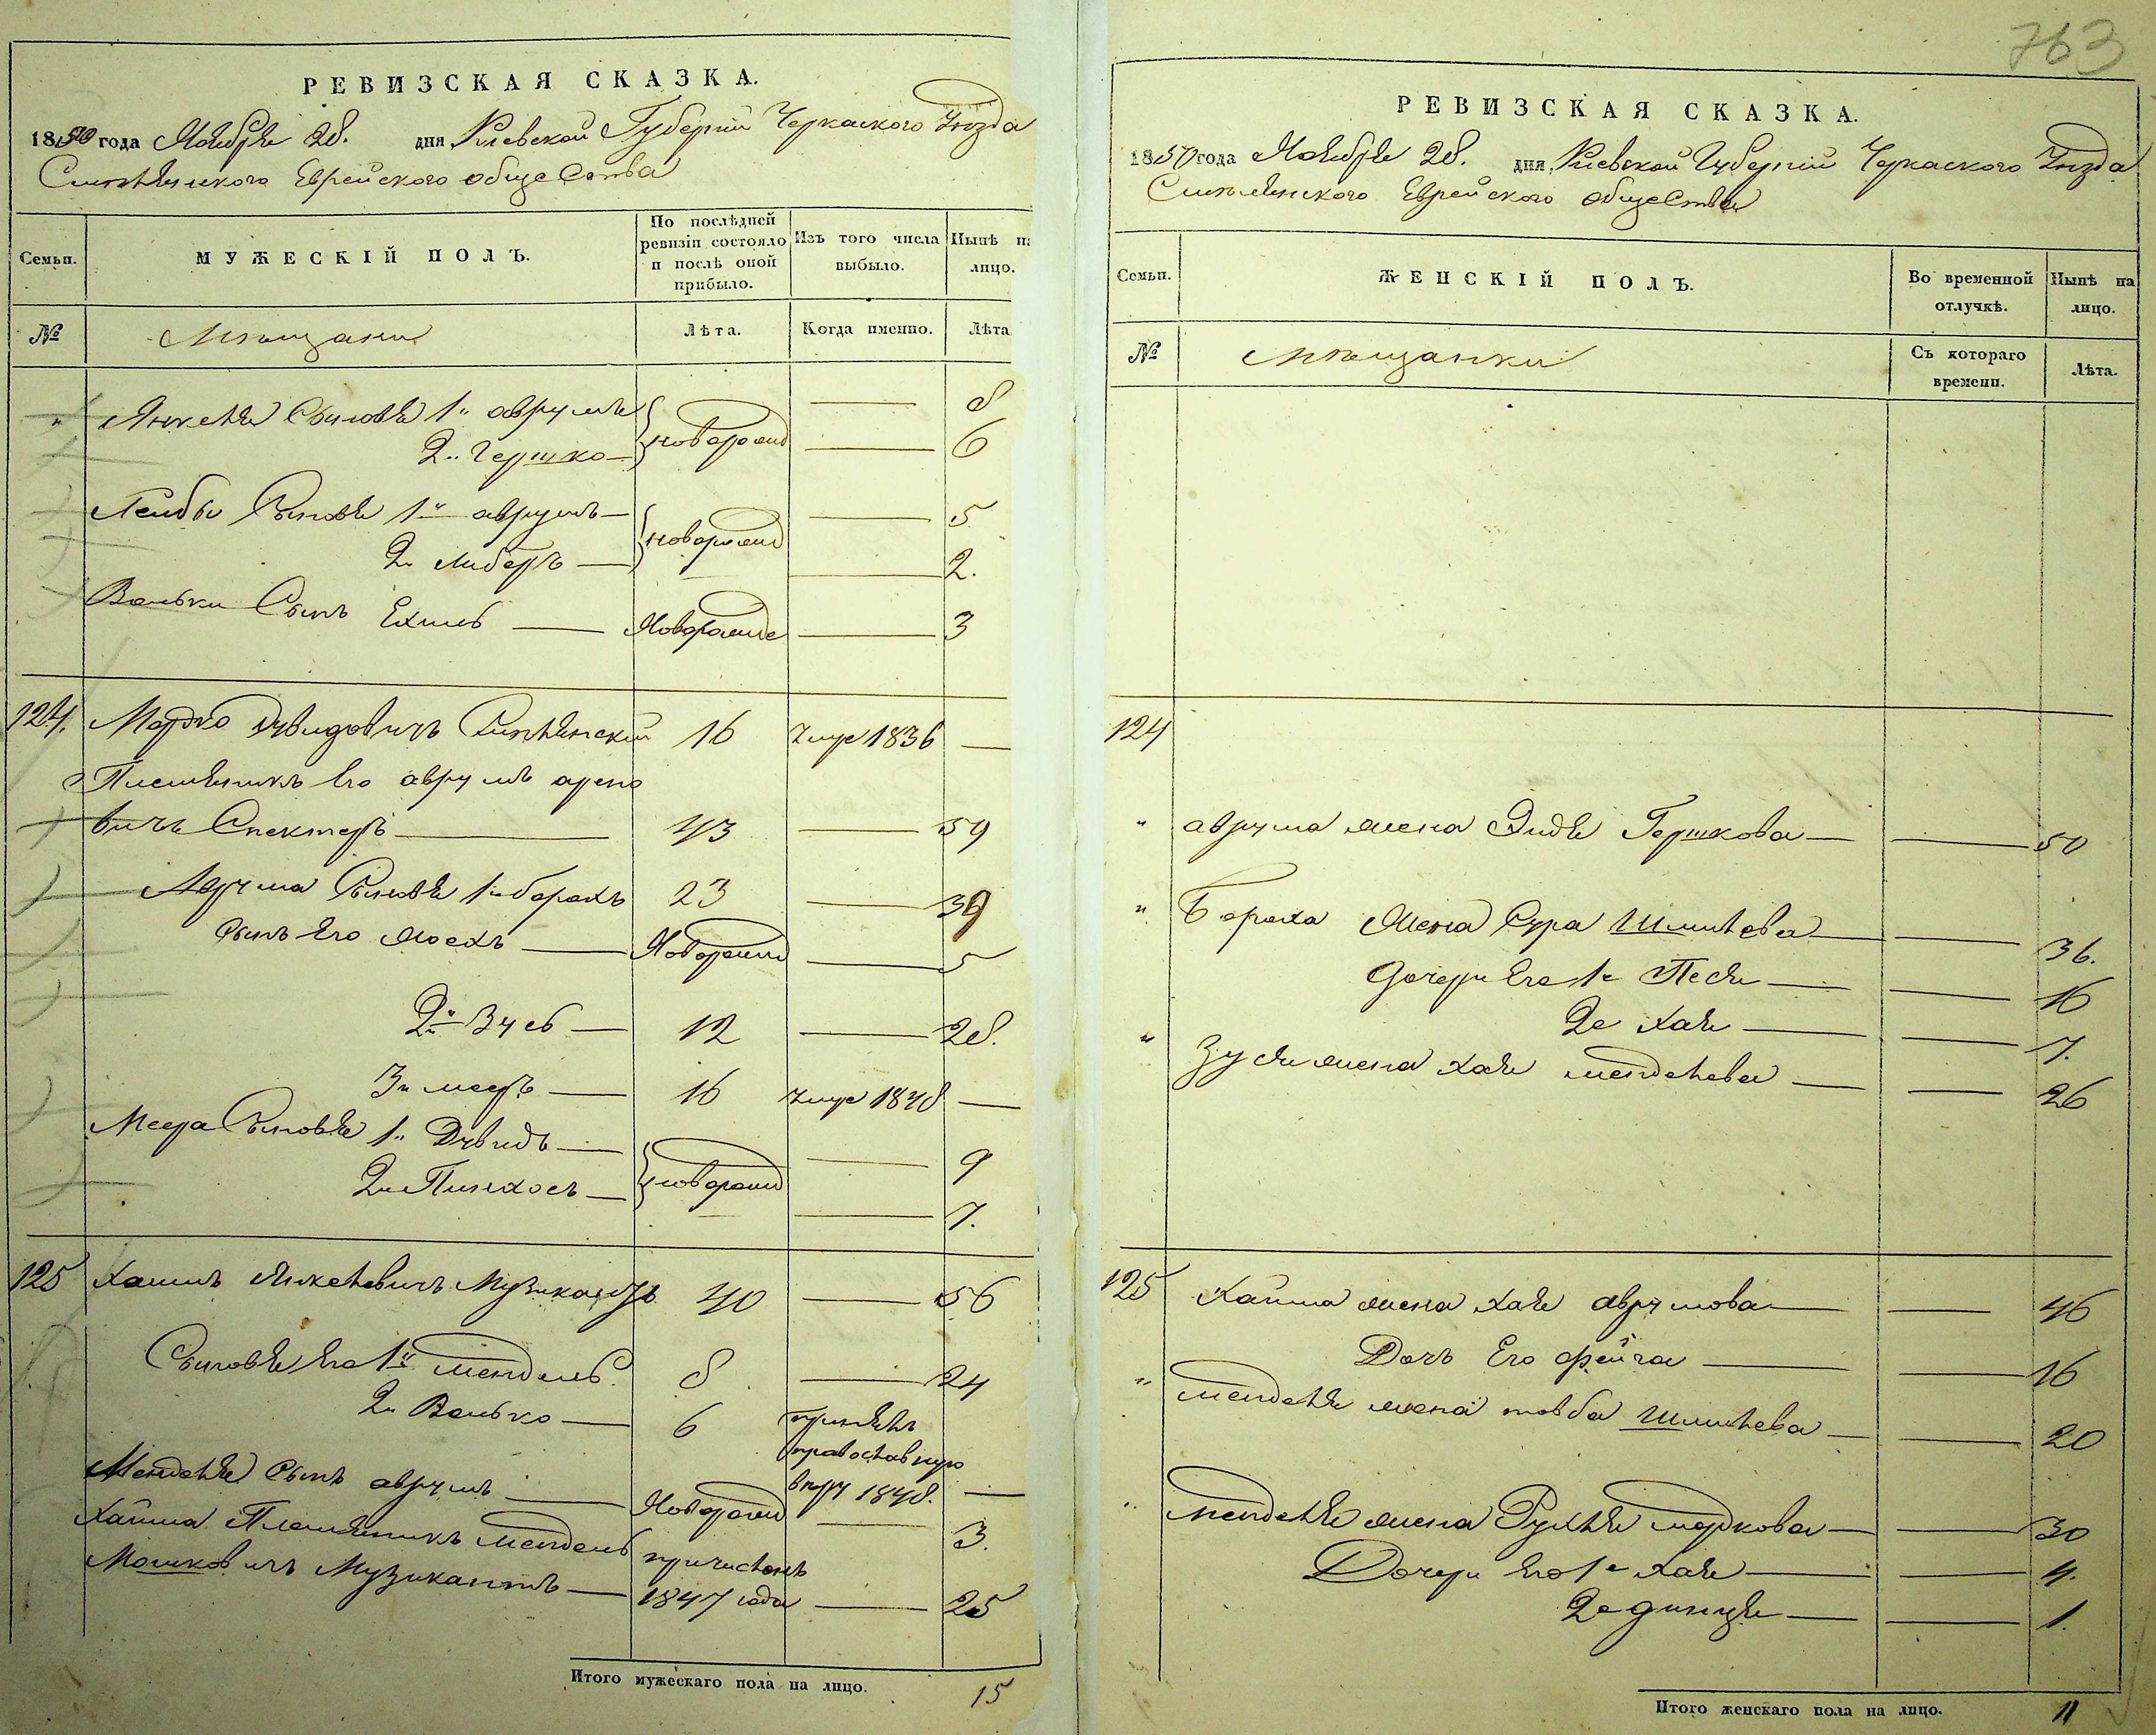 763
РЕВИЗСКАЯ СКАЗКА.
1850 года Ноября 28. дня, Киевской Губерніи Черкаского Уѣзда
Смѣлянского Еврейского общества
Семьи.
МУЖЕСКІЙ ПОЛЪ.
По послѣдней ревизіи состояло и послѣ оной прибыло.
Изъ того числа выбыло.
Нынѣ на лицо.
№
Мѣщани
Лѣта.
Когда именно.
Лѣта
" Янкеля Сыновья 1й аврумъ новорожд — 8
2й Гершко — 6
Лейбы Сыновья 1й аврумъ — новорожд — 5
2й Либеръ — 2.
Волько Сынъ Ехиль — Новорожде — 3
124. Мордко Дувидовичъ Смѣлянскій 16 Умре 1836 —
Племянникъ Его аврумъароно
вичъ Спекторъ — 43 — 59
Аврума Сыновья 1й борохъ 23 — 39
Сынъ Его Мосехъ — Новорожд — 5
2й Зусь — 12 — 28.
3й мееръ — 16 Умре 1848 —
Меера Сыновья 1й Дувидъ — новорожд — 9
2й Пинхосъ — 7.
125 Хаимъ Янкелевичъ Музикантъ 40 — 56
Сыновья Его 1й Мендель 8 — 24
2й Волько — 6 принялъ
православную
вѣру 1848. —
Менделя Сынъ аврумъ — Новорожд — 3.
Хаима Племянникъ Мендель причисленъ
Мошковичъ Музикантъ — 1847 года — 25
Итого мужескаго пола на лицо. 15
РЕВИЗСКАЯ СКАЗКА.
1850 года Ноября 28. дня, Киевской Губерніи Черкаского Уѣзда
Смѣлянского Еврейского общества
Семьи.
ЖЕНСКІЙ ПОЛЪ.
Во временной отлучкѣ.
Нынѣ на лицо.
№
Мѣщанки
Съ котораго времени.
Лѣта.
124
" аврума жена Эидя Гершкова — 50
" Бороха жена Сура Шмилева — 36.
Дочери Его 1я Песя — 16
2я Хая — 7.
" Зуси жена хая менделева — 26
125 Хаима жена хая аврумова — 46
Дочь Его фейга — 16
" Менделя жена товба Шмилева — 20
" Менделя жена Рухля мордкова — 30
Дочери Его 1я Хая — 4.
2я динця — 1.
Итого женскаго пола на лицо. 11